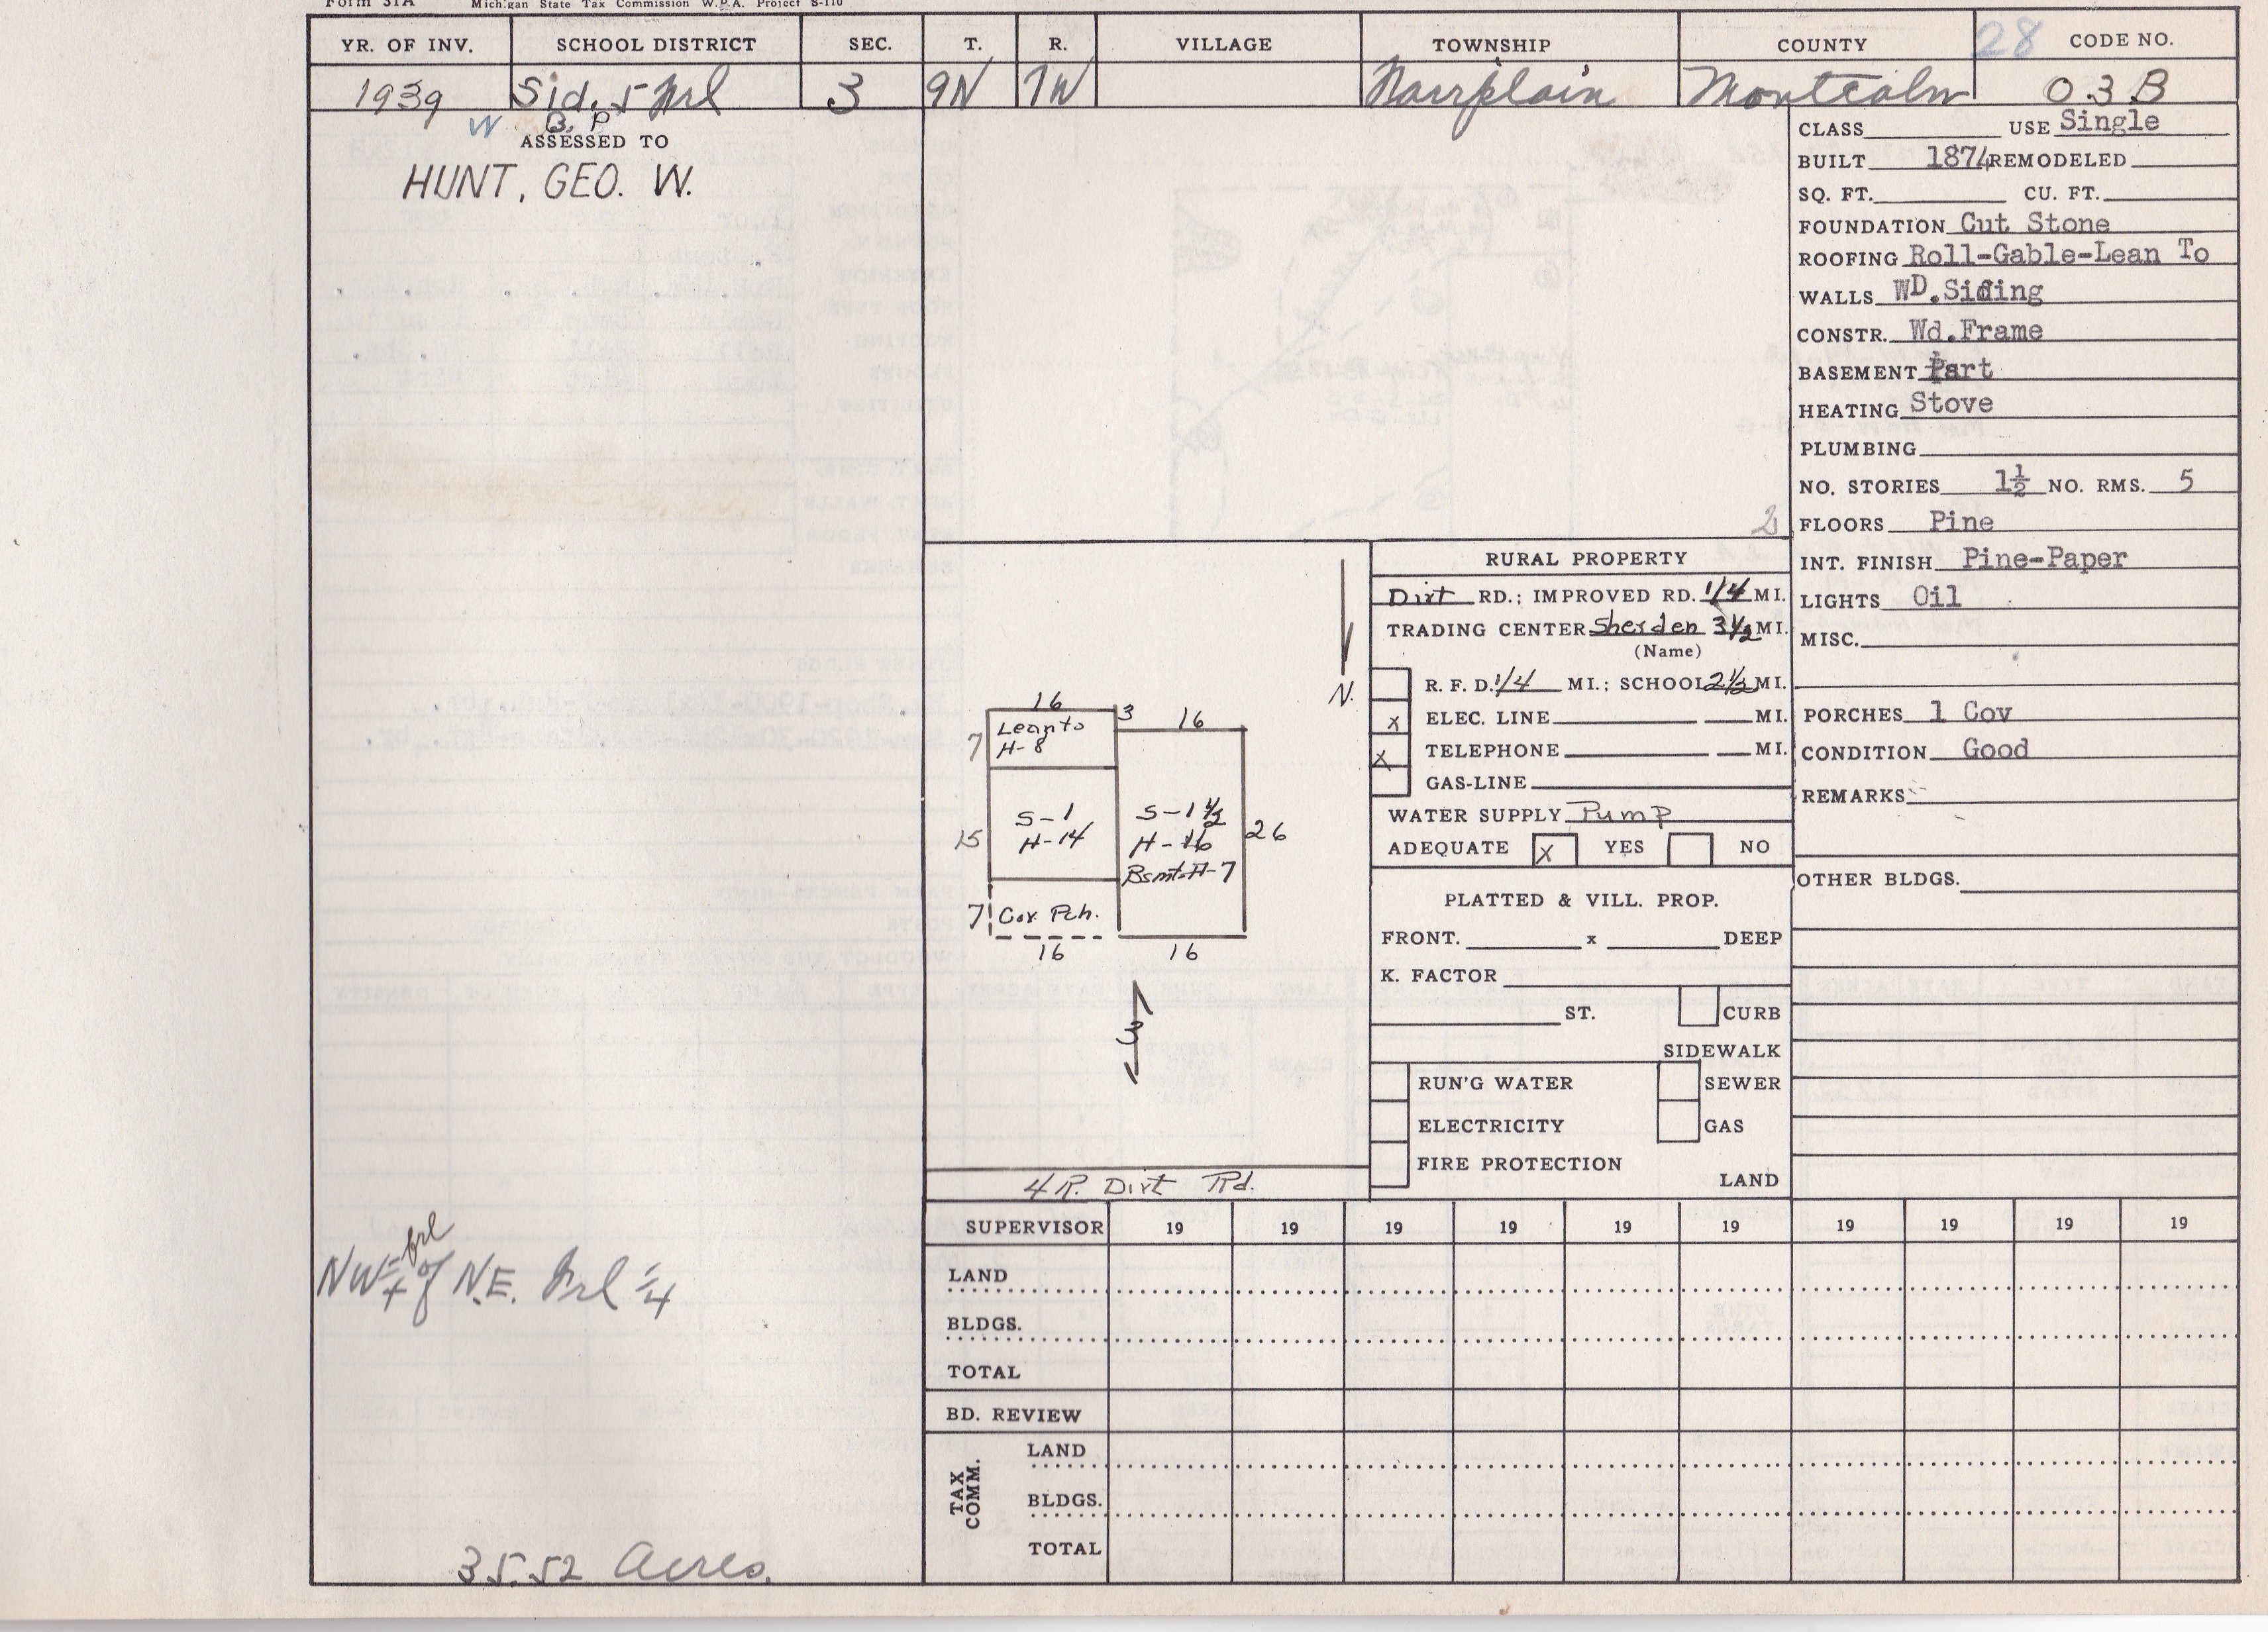 Form 31A Michigan State Tax Commission W.P.A. Project S-110
YR. OF INV. SCHOOL DISTRICT SEC. T. R. VILLAGE TOWNSHIP COUNTY 28 CODE NO.
1939 Sid. 5 frl 3 9N 7W Fairplain Montcalm 03B
W B. P
ASSESSED TO
HUNT, GEO. W.
NW frl ¼ of N.E. frl ¼
35.52 Acres.
2
N.
16
3
16
7
Lean to
H-8
15
S-1
H-14
S-1 1/2
H-16
Bsmt-H-7
26
7
Cov. Pch.
16
16
4 R. Dirt Rd.
RURAL PROPERTY
Dirt RD.; IMPROVED RD. 1/4 MI.
TRADING CENTER Sherden 3 1/2 MI.
(Name)
R. F. D. 1/4 MI.; SCHOOL 2 1/2 MI.
x ELEC. LINE MI.
x TELEPHONE MI.
GAS-LINE
WATER SUPPLY Pump
ADEQUATE x YES NO
PLATTED & VILL. PROP.
FRONT. x DEEP
K. FACTOR
ST. CURB
SIDEWALK
RUN'G WATER SEWER
ELECTRICITY GAS
FIRE PROTECTION
LAND
CLASS USE Single
BUILT 1874 REMODELED
SQ. FT. CU. FT.
FOUNDATION Cut Stone
ROOFING Roll-Gable-Lean To
WALLS WD.Siding
CONSTR. Wd.Frame
BASEMENT Part
HEATING Stove
PLUMBING
NO. STORIES 1½ NO. RMS. 5
FLOORS Pine
INT. FINISH Pine-Paper
LIGHTS Oil
MISC.
PORCHES 1 Cov
CONDITION Good
REMARKS
OTHER BLDGS.
SUPERVISOR 19 19 19 19 19 19 19 19 19 19
LAND
BLDGS.
TOTAL
BD. REVIEW
TAX COMM.
LAND
BLDGS.
TOTAL